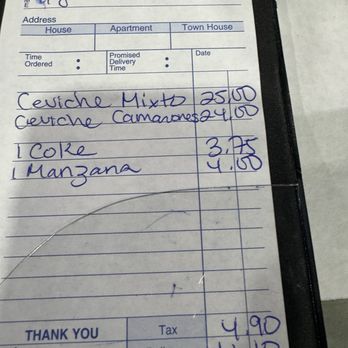 Address
House Apartment Town House
Time Ordered : Promised Delivery Time : Date
Ceviche Mixto 25,00
Ceviche Camarones 24,00
1 Coke 3.75
1 Manzana 4.00
THANK YOU Tax 4.90